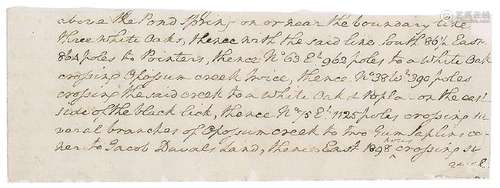 above the Pond Spring on or near the boundary line
three White Oaks, thence with the said line South 86½ East
864 poles to Pointers, thence N° 63 E† 962 poles to a White Oak
crossing Opossum creek twice, thence N° 38 W† 390 poles
crossing the said creek to a White Oak & on the east
side of the black lick, thence N° 75 E† 1125 poles crossing se
veral branches of Opossum creek to two Gum Saplins co-
ner to Jacob Land, thence East 1898 crossing se